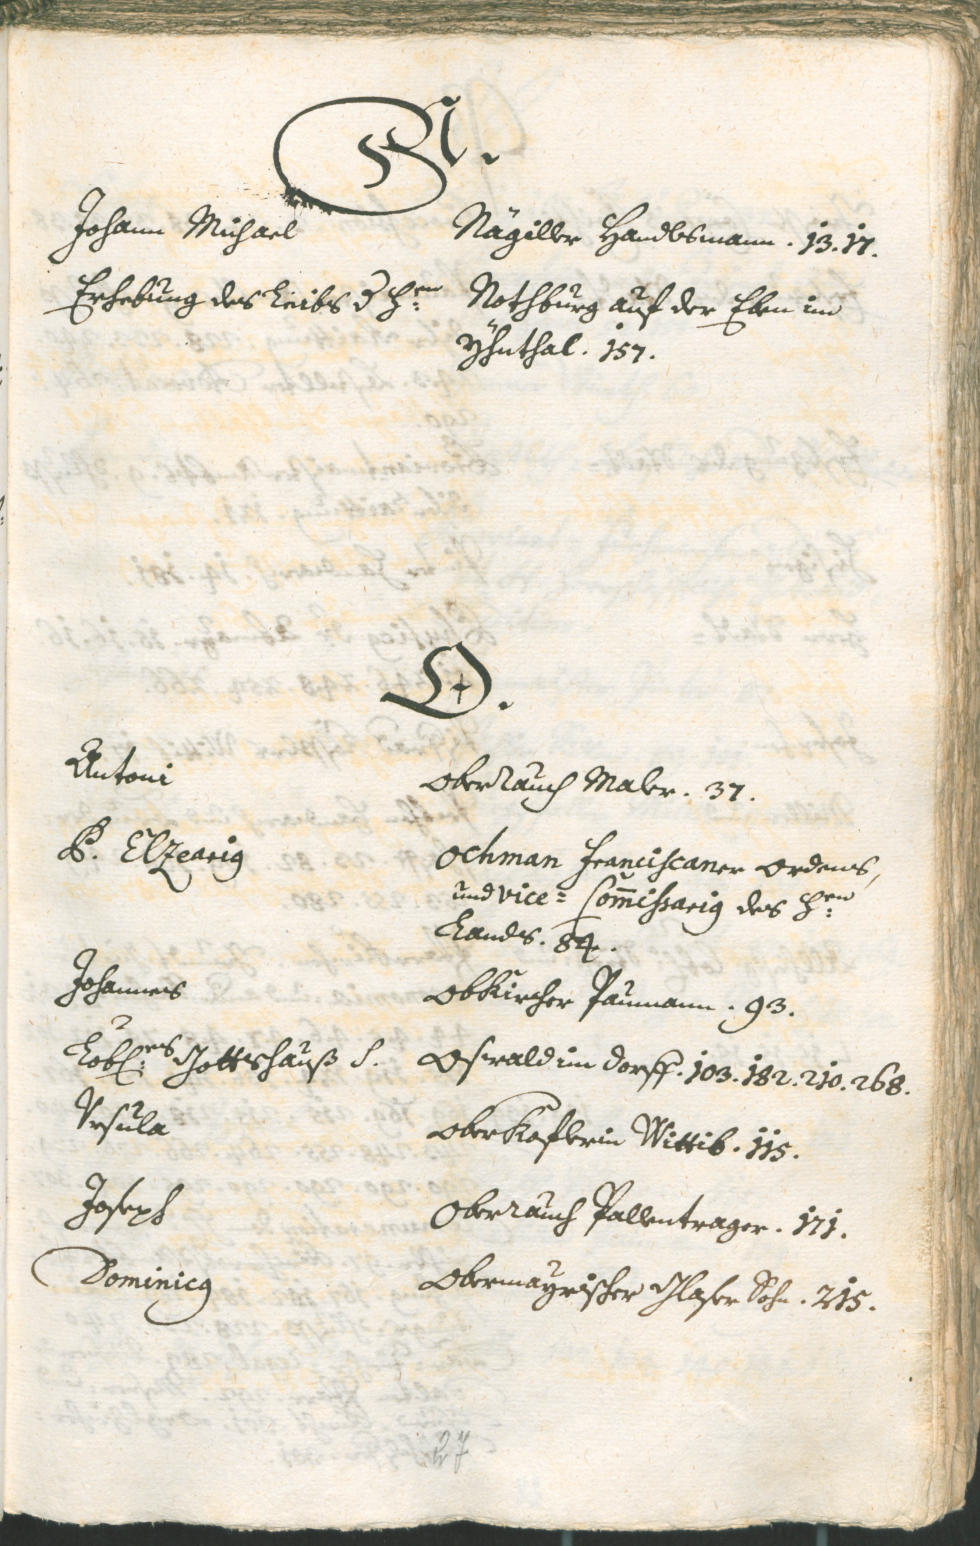 N.
Johann Michael Nägiller Handlsmann. 13. 17.
Erhebung des Leibs d. Hen: Nothburg auf der Eben im
Yhnthal. 157.
O.
Antoni oberrauch Maler. 37.
P. Elzearig ochman Franciscaner ordens,
und vice= Com̄issarig des Hen:
Lands. 84.
Johannes obkircher Paumann. 93.
Lobl:es Gottshauß S. Oswald im dorff. 103. 182. 210. 268.
Vrsula oberkoflerin Wittib. 115.
Joseph oberrauch Pallentrager. 171.
Dominicg obermayrischer Glaser Sohn. 215.
27